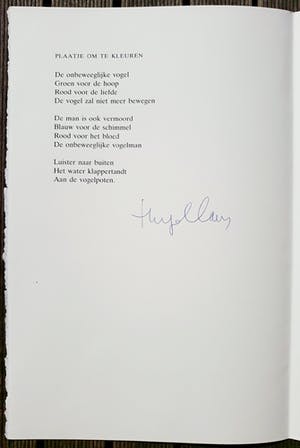 PLAATJE OM TE KLEUREN
De onbeweeglijke vogel
Groen voor de hoop
Rood voor de liefde
De vogel zal niet meer bewegen
De man is ook vermoord
Blauw voor de schimmel
Rood voor het bloed
De onbeweeglijke vogelman
Luister naar buiten
Het water klappertandt
Aan de vogelpoten.
Hugo Claus